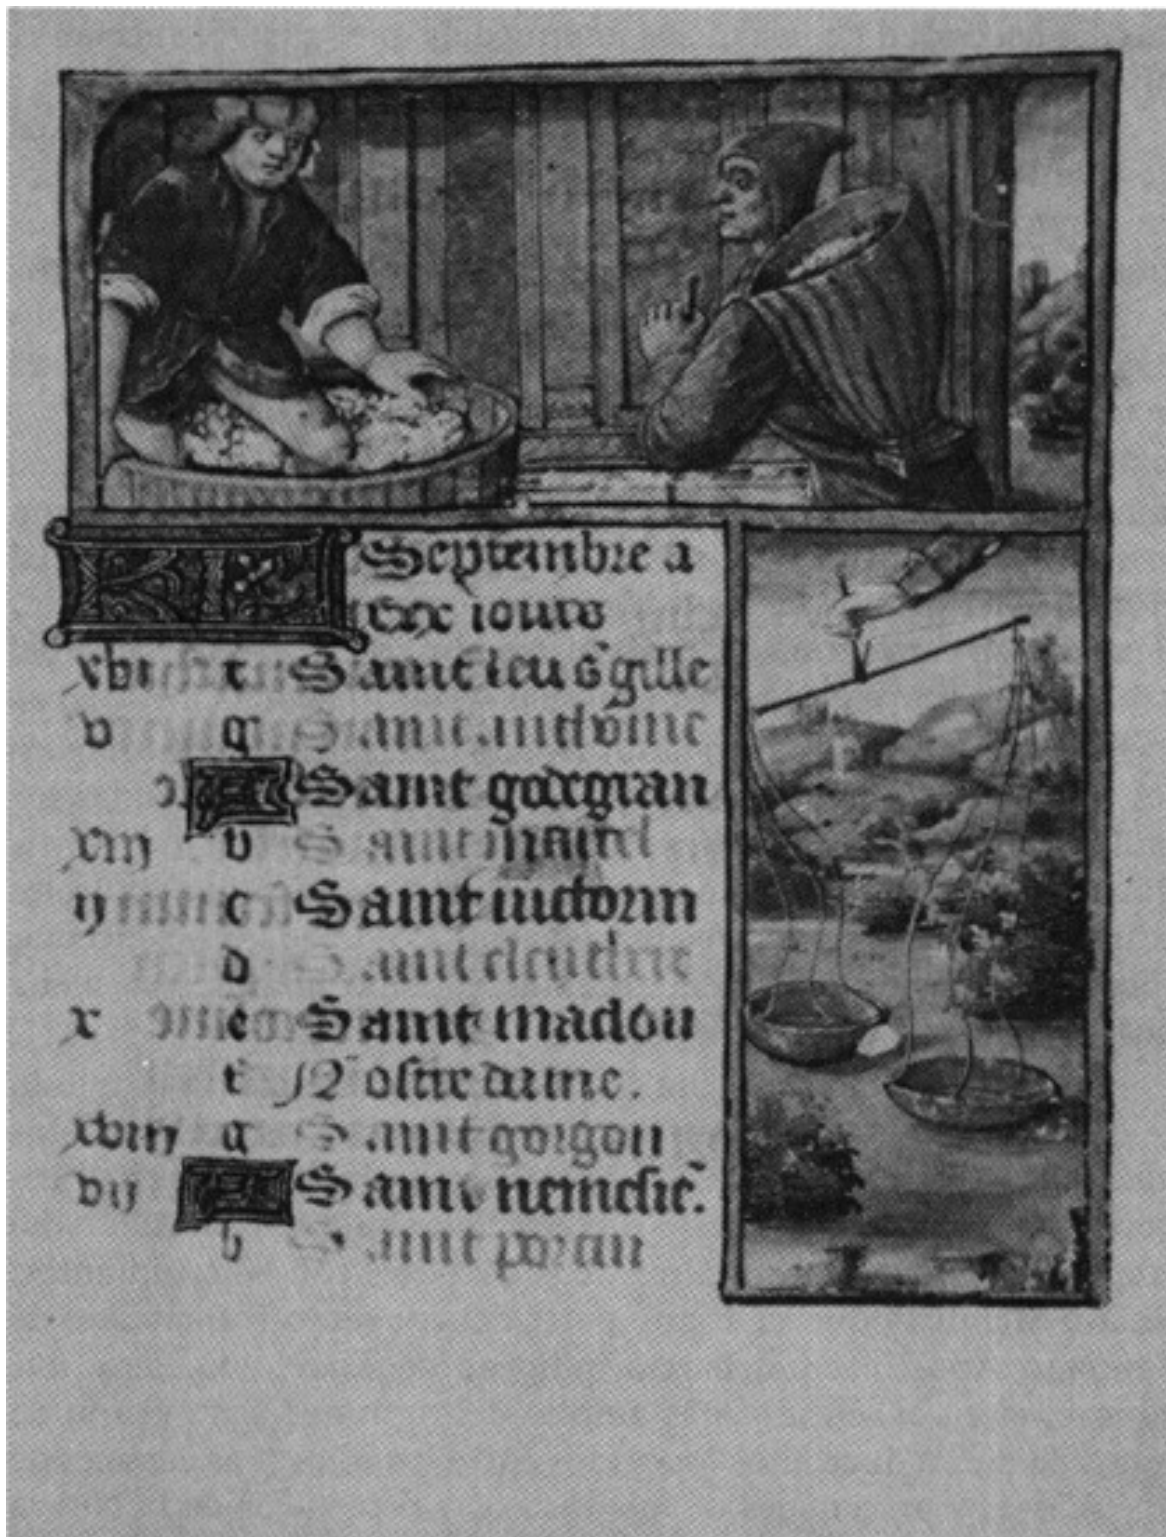 KL Septembre a
xxx iours
xvi f Saint leu s gille
v g Saint anthoine
A Saint gorgian
xiii b Saint
ii c Saint victorin
d Saint eleuthere
x e Saint madou
f Nostre dame.
xviii g Saint gorgon
vii A Saint nemesie.
b Saint